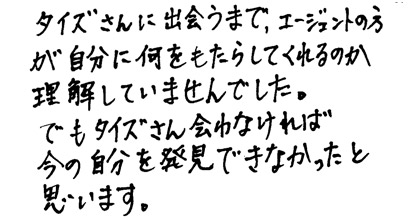 タイズさんに出会うまで、エージェントの方
が自分に何をもたらしてくれるのか
理解していませんでした。
でもタイズさん会わなければ
今の自分を発見できなかったと
思います。